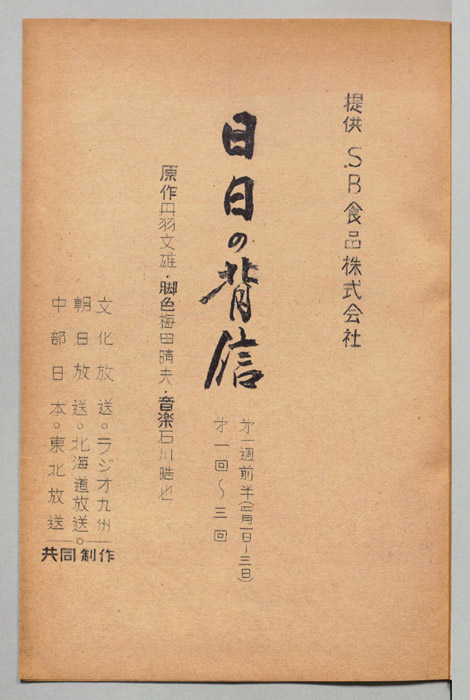 提供 S.B食品株式会社
日日の背信
才一週前半(四月一日~三日)
才一回~三回
原作丹羽文雄・脚色梅田晴夫・音楽石川皓也
文化放送。ラジオ九州
朝日放送。北海道放送。
中部日本。東北放送
共同制作